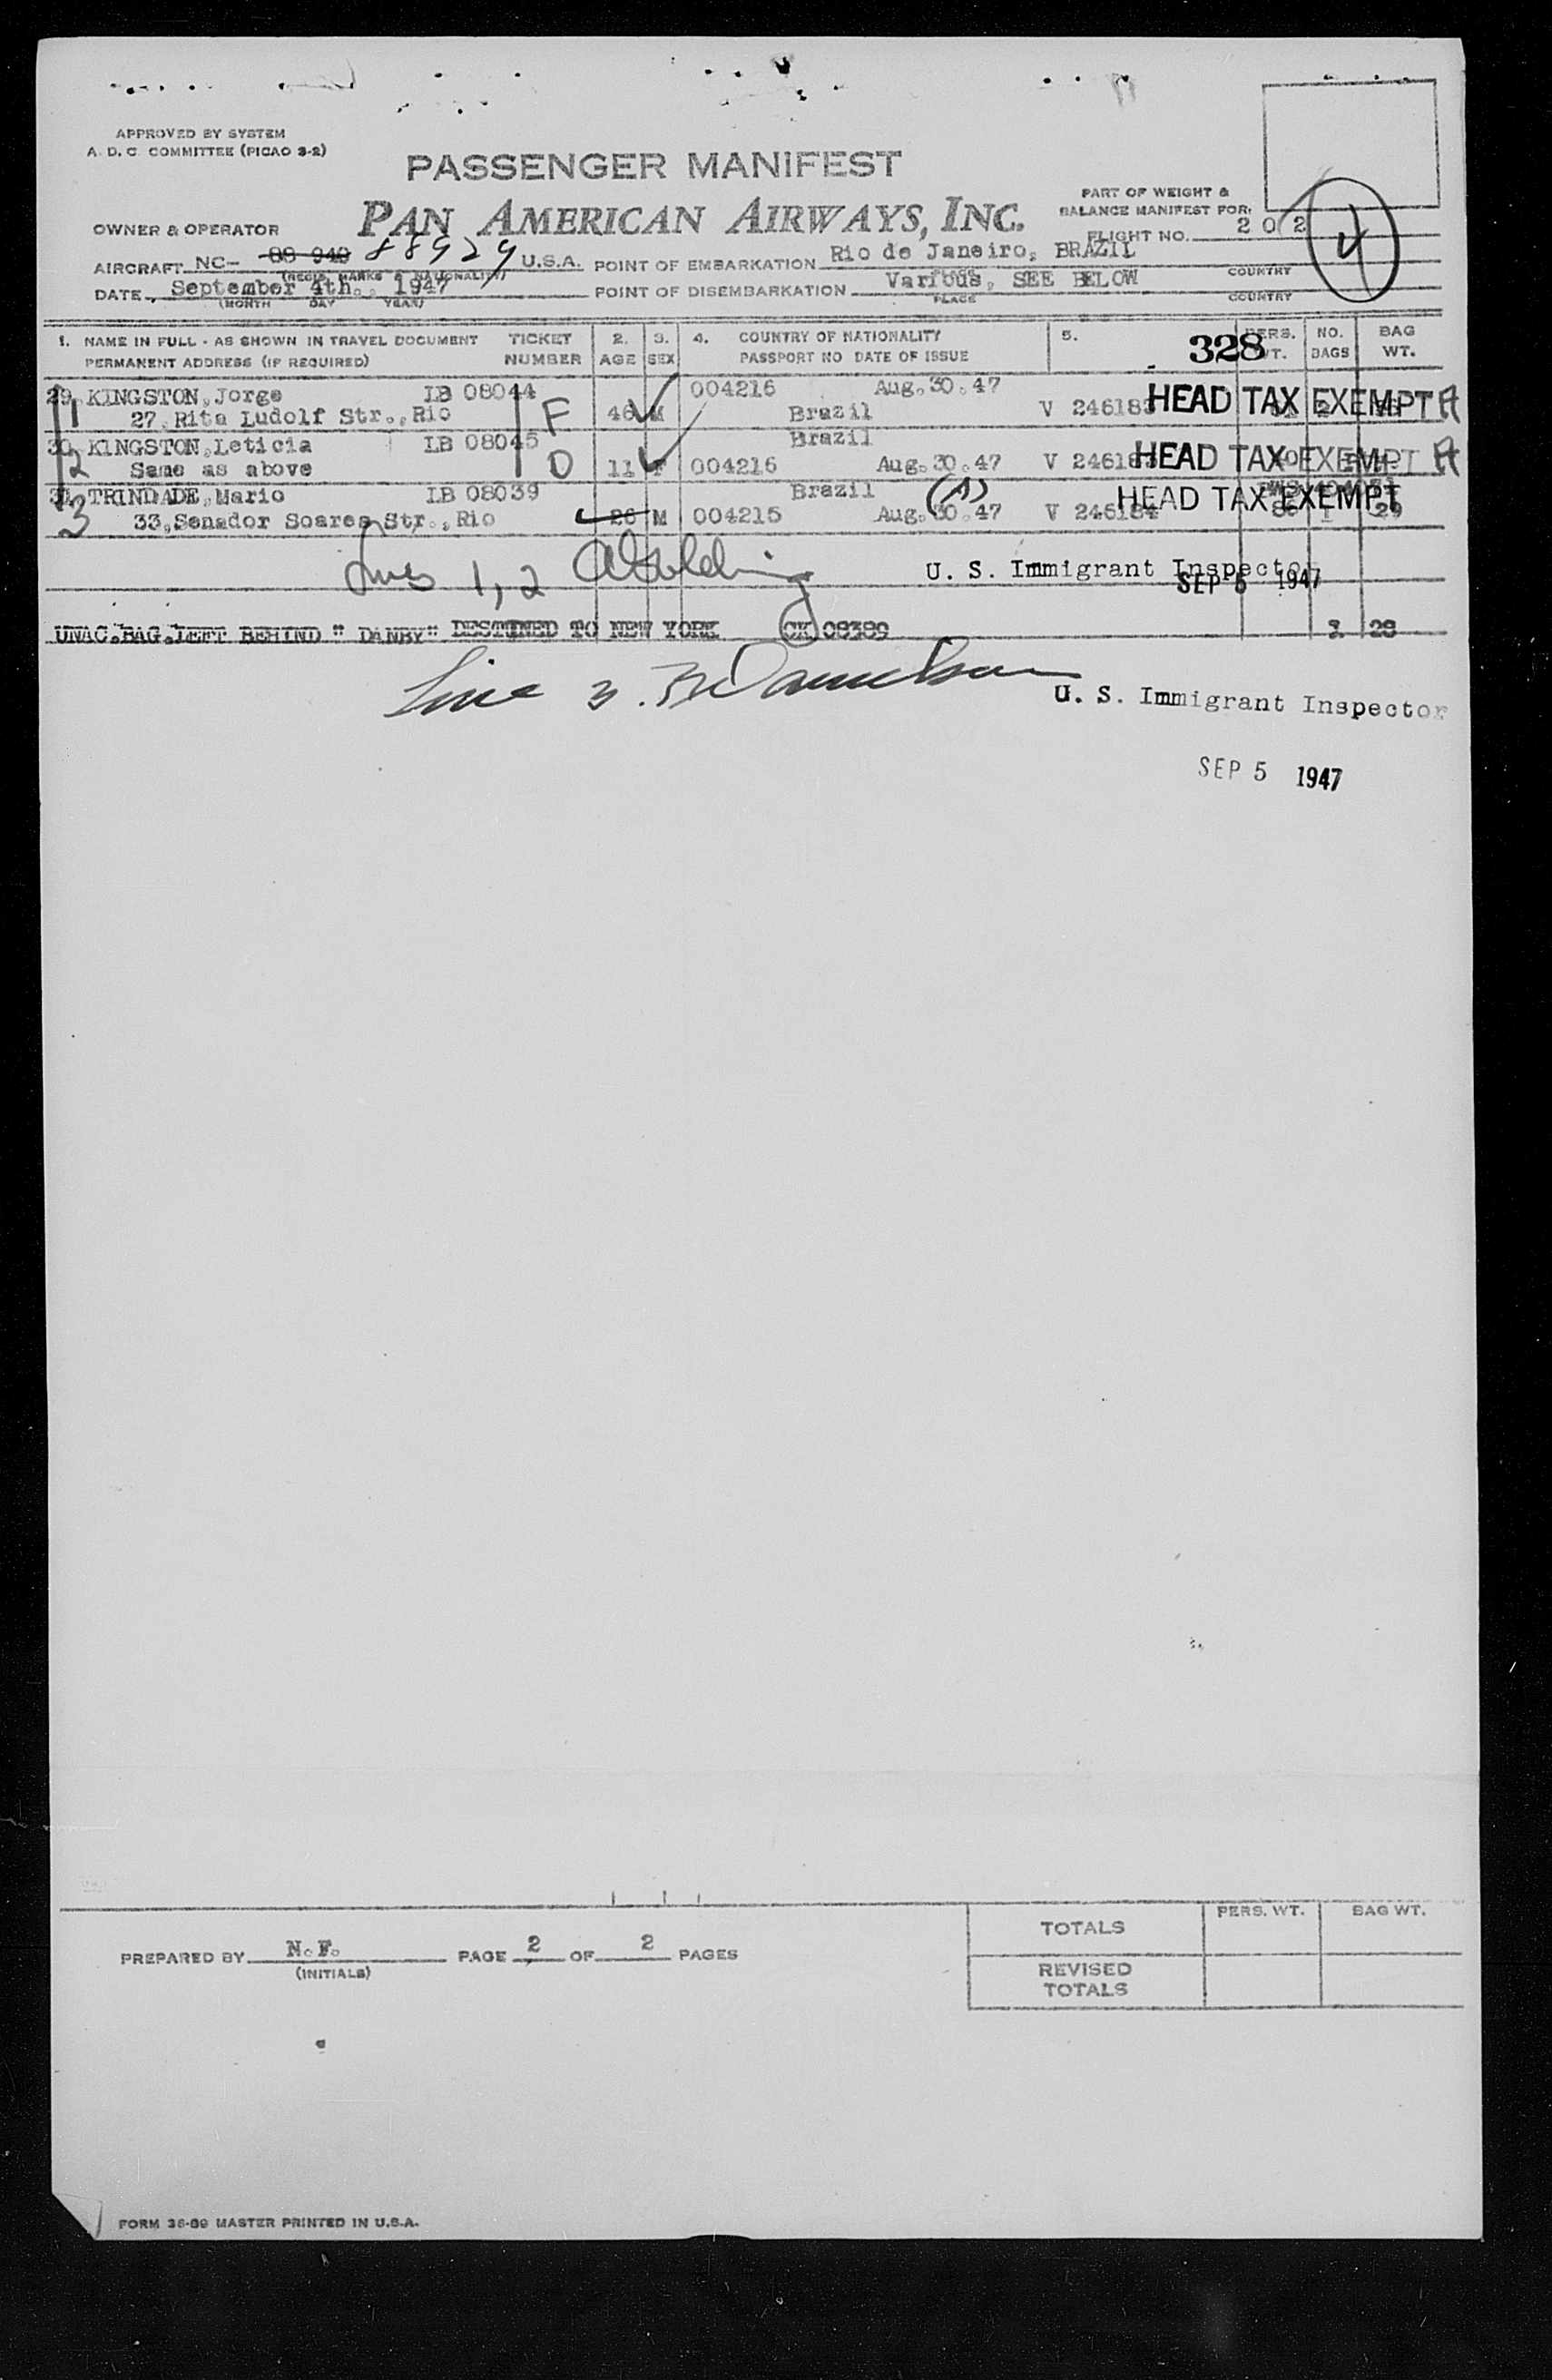 APPROVED BY SYSTEM
A. D. C. COMMITTEE (PICAO 3-2)
PASSENGER MANIFEST
PART OF WEIGHT &
BALANCE MANIFEST FOR:
OWNER & OPERATOR PAN AMERICAN AIRWAYS, INC.
FLIGHT NO. 202
4
AIRCRAFT NC- 88 949 88929 U.S.A. POINT OF EMBARKATION Rio de Janeiro, BRAZIL
(REGIS. MARKS & NATIONALITY) PLACE COUNTRY
DATE September 4th., 1947 POINT OF DISEMBARKATION Various, SEE BELOW
(MONTH DAY YEAR) PLACE COUNTRY
1. NAME IN FULL - AS SHOWN IN TRAVEL DOCUMENT TICKET 2. 3. 4. COUNTRY OF NATIONALITY 5. 328 PERS. NO. BAG
PERMANENT ADDRESS (IF REQUIRED) NUMBER AGE SEX PASSPORT NO DATE OF ISSUE WT. BAGS WT.
29. KINGSTON, Jorge LB 08044 004216 Aug. 30. 47
1 27, Rita Ludolf Str., Rio F 46 M Brazil V 246183 HEAD TAX EXEMPT A
30. KINGSTON, Leticia LB 08045 Brazil
2 Same as above O 11 F 004216 Aug. 30. 47 V 246183 HEAD TAX EXEMPT A
31. TRINDADE, Mario LB 08039 Brazil (A) HEAD TAX EXEMPT
3 33, Senador Soares Str., Rio 26 M 004215 Aug. 30. 47 V 246184 29
1, 2 U. S. Immigrant Inspector
SEP 5 1947
UNAC. BAG. LEFT BEHIND " DANBY" DESTINED TO NEW YORK CK 08389 28
Line 3. U. S. Immigrant Inspector
SEP 5 1947
PERS. WT. BAG WT.
TOTALS
PREPARED BY N. F. PAGE 2 OF 2 PAGES
(INITIALS)
REVISED
TOTALS
FORM 36-89 MASTER PRINTED IN U.S.A.